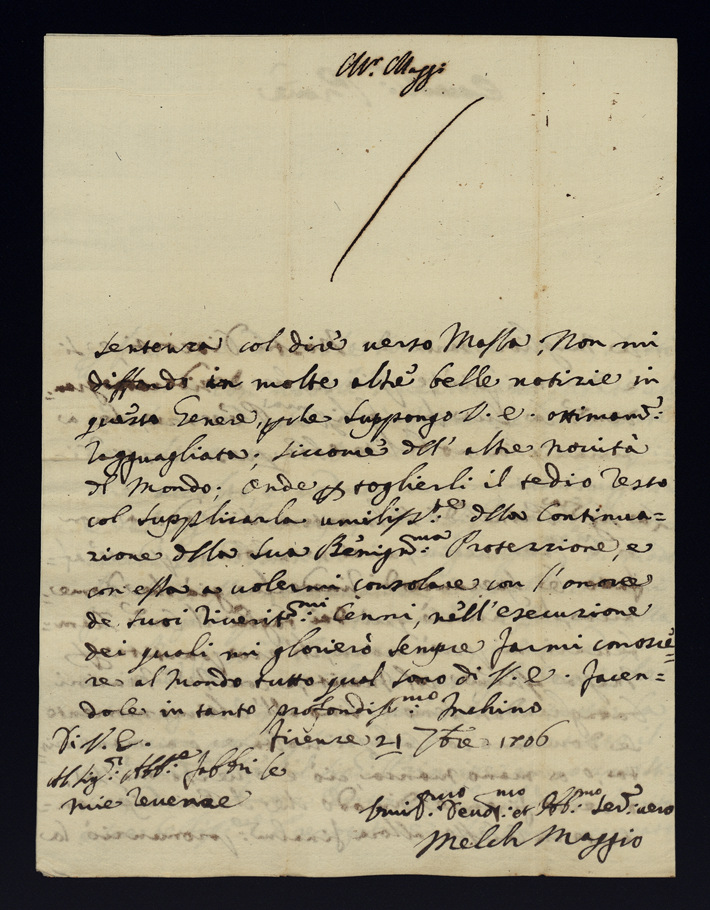 Sr. Maggi
sentenza col dire verso Massa; Non mi
diffondo in molte altre belle notizie in
questo Genere, p che suppongo V. E. ottimamte:
ragguagliata; siccome dell' altre Novità
del Mondo; Onde p toglierli il tedio resto
col supplicarla umilisste: della Continua=
zione della sua Benignma: Protezzione, e
con essa a volermi consolare con l'onore
de suoi riveritmi: Cenni, nell'esecuzione
dei quali mi glorierò sempre farmi conosce=
re al Mondo tutto qual sono di V. E. facen=
dole in tanto profondismo: Inchino
Di V. E. Firenze 21 7bre 1706
Al Sigr: Abbe: Fabbri le
mie revenze
Umilmo: Devmo: et Obbmo: Serv: vero
Melch Maggio